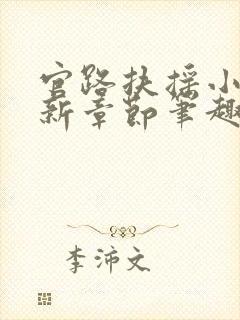 官路扶摇小
新章节笔趣
李沛文